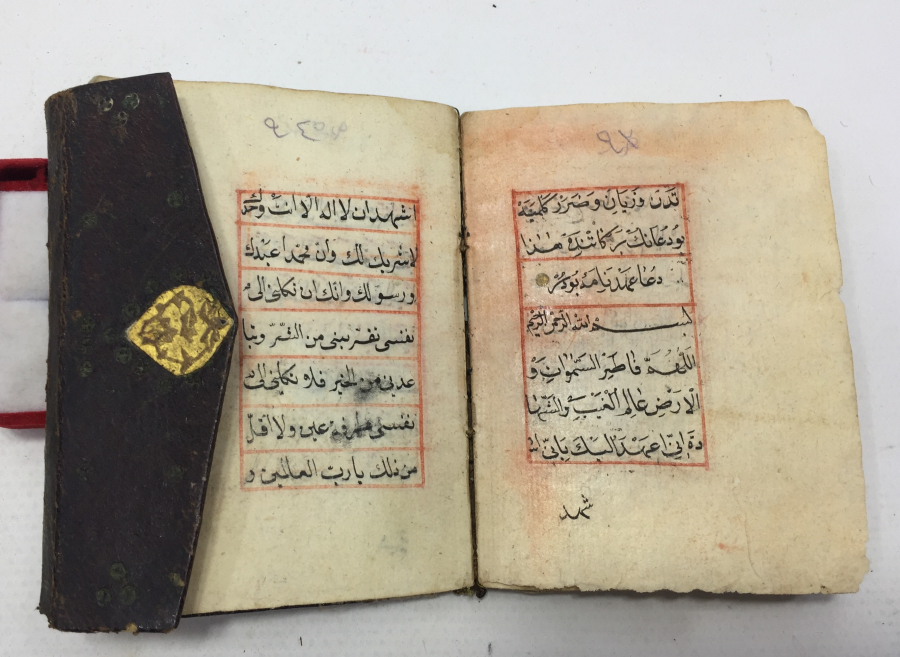 ٩٨
تدن و زیان و ضرر كلمیه
بودعانك بركاتنده هذا
دعا عهد نامه بودر
بسم الله الرحمن الرحيم
اللهمة فاطر السموات و
الارض عالم الغيب والشها
دة انى اعهد اليك بانى اش
شهد
اشهد ان لا اله الا انت وحد
لا شريك لك وان محمدا عبدك
ورسولك وانك ان تكلنى الى
نفسى تقربنى من الشر وتبا
عدنى من الخير فلا تكلنى الى
نفسى طرفة عين ولا اقل
من ذلك يا رب العالمين و